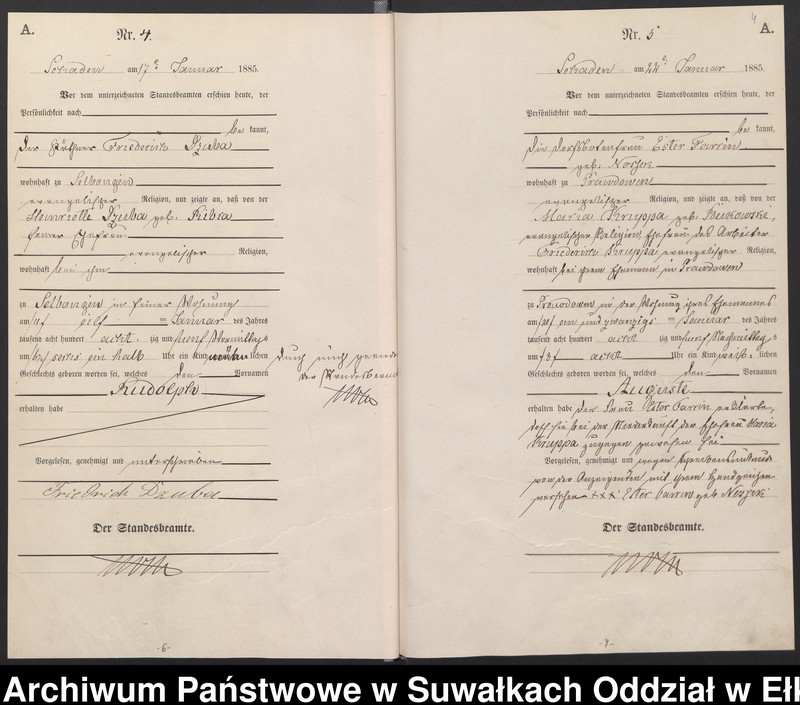 A.
Nr. 4.
Schaden am 17ⁿ Januar 1885.
Vor dem unterzeichneten Standesbeamten erschien heute, der
Persönlichkeit nach
be kannt,
der Friederich Dzuba
wohnhaft zu
evangelischer Religion, und zeigte an, daß von der
Henriette Dzuba geb.
seiner Ehefrau
evangelischer Religion,
wohnhaft bei ihm
zu in seiner Wohnung
am elf Januar des Jahres
tausend acht hundert acht zig und fünf Vormittags
um ein halb Uhr ein Kind männlichen
Geschlechts geboren worden sei, welches den Vornamen
Rudolph
erhalten habe
Vorgelesen, genehmigt und unterschrieben
Friedrich Dzuba
Der Standesbeamte.
-6-
Der Standesbeamte
4
A.
Nr. 5
Schaden am 22ⁿ Januar 1885.
Vor dem unterzeichneten Standesbeamten erschien heute, der
Persönlichkeit nach
be kannt,
die Ester Farrin
geb.
wohnhaft zu Prawdowen
evangelischer Religion, und zeigte an, daß von der
Maria Kruppa geb.
evangelischer Religion, Ehefrau des Arbeiter
Friederich Kruppa evangelischer Religion,
wohnhaft bei ihrem Ehemann in Prawdowen
zu Prawdowen in der Wohnung ihres Ehemannes
am ein und zwanzigs Januar des Jahres
tausend acht hundert acht zig und fünf Nachmittags
um acht Uhr ein Kind weib lichen
Geschlechts geboren worden sei, welches den Vornamen
Auguste
erhalten habe die Frau Ester Farrin erklärte,
daß sie bei der Niederkunft der Ehefrau Maria
Kruppa zugegen gewesen sei
Vorgelesen, genehmigt und wegen Schreibensunkunde
von der Anzeigenden mit ihrem Handzeichen
versehen +++ Ester Farrin geb
Der Standesbeamte.
-7-
Archiwum Państwowe w Suwałkach Oddział w Ełk